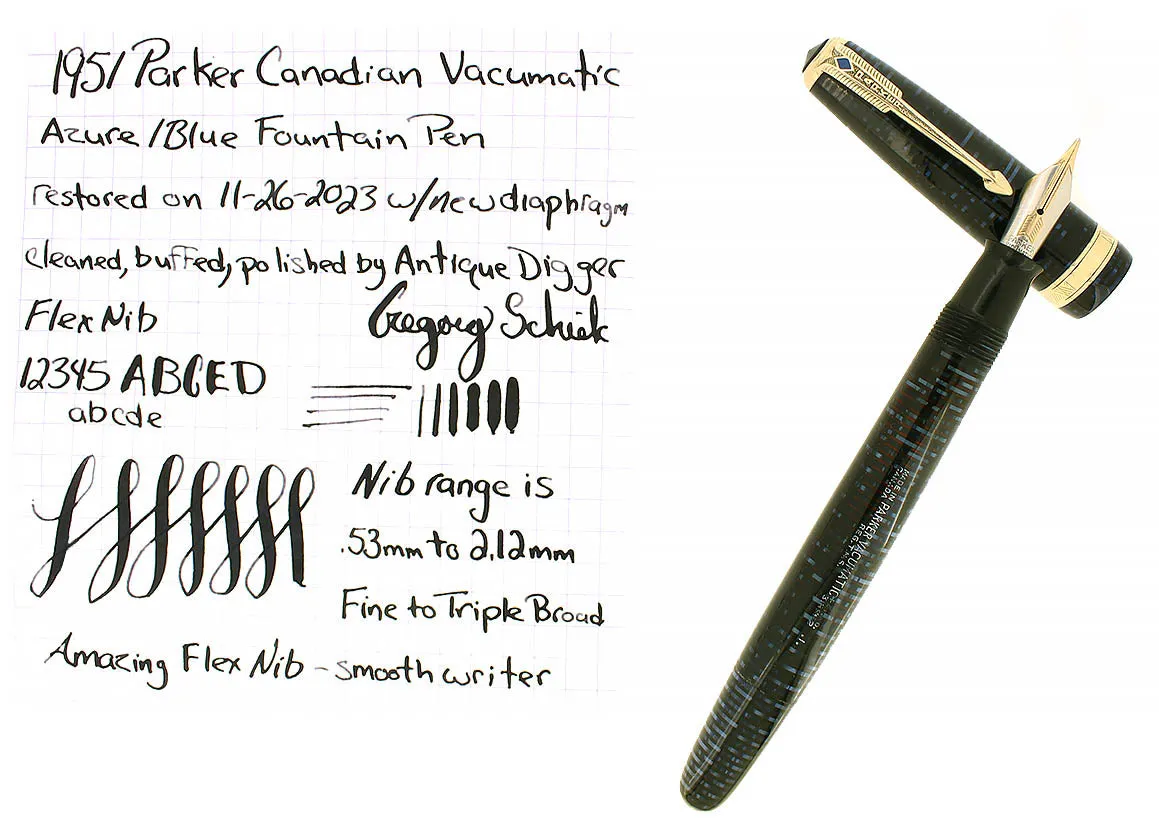 1951 Parker Canadian Vacumatic
Azure/Blue Fountain Pen
restored on 11-26-2023 w/new diaphragm
cleaned, buffed, polished by Antique Digger
Flex Nib
Gregory Schiek
12345 ABCED
abcde
Nib range is
.53mm to 2.12mm
Fine to Triple Broad
Amazing Flex Nib - smooth writer
PARKER
PARKER
MADE IN
CANADA
PARKER VACUMATIC